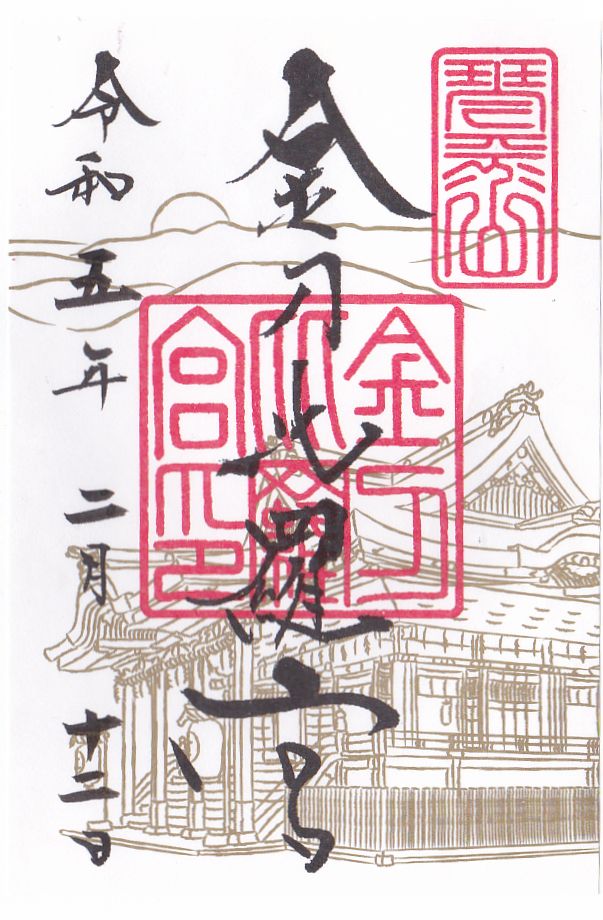 琴平山
金刀比羅宮
金刀
比羅
宮印
令和五年二月十二日